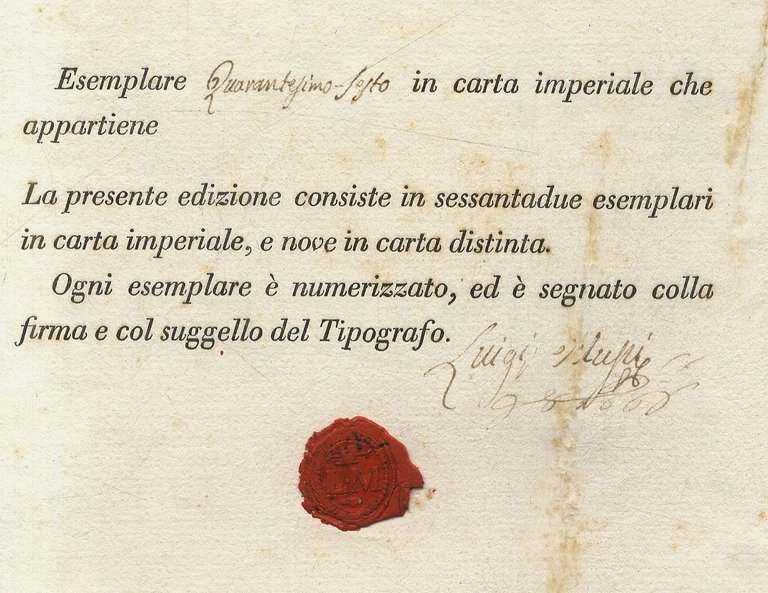 Esemplare Quarantesimo-sesto in carta imperiale che
appartiene
La presente edizione consiste in sessantadue esemplari
in carta imperiale, e nove in carta distinta.
Ogni esemplare è numerizzato, ed è segnato colla
firma e col suggello del Tipografo.
Luigi Mussi
L.M.